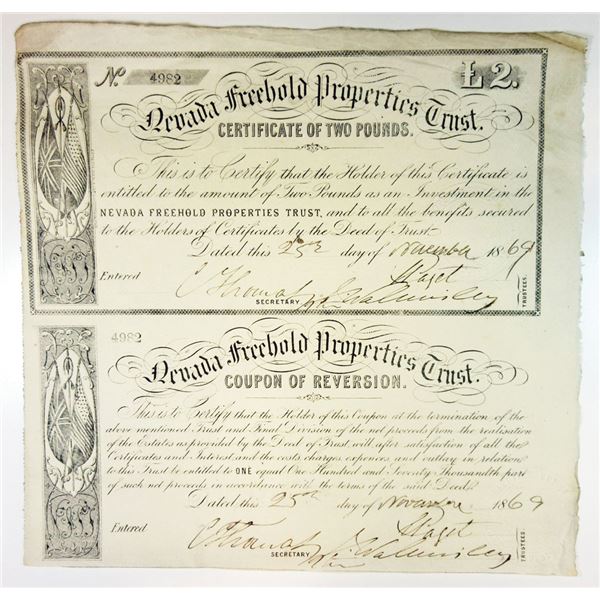 No. 4982 £2.
Nevada Freehold Properties Trust.
CERTIFICATE OF TWO POUNDS.
This is to Certify that the Holder of this Certificate is
entitled to the amount of Two Pounds as an Investment in the
NEVADA FREEHOLD PROPERTIES TRUST, and to all the benefits secured
to the Holders of Certificates by the Deed of Trust.
Dated this 25th day of November 1869
Entered
SECRETARY
TRUSTEES.
4982
Nevada Freehold Properties Trust.
COUPON OF REVERSION.
This is to Certify that the Holder of this Coupon at the termination of the
above mentioned Trust and Final Division of the net proceeds from the realisation
of the Estates as provided by the Deed of Trust will after satisfaction of all the
Certificates and Interest and the costs, charges expences and outlay in relation
to this Trust be entitled to ONE equal One Hundred and Seventy Thousandth part
of such net proceeds in accordance with the terms of the said Deed.
Dated this 25th day of November 1869
Entered
SECRETARY
TRUSTEES.